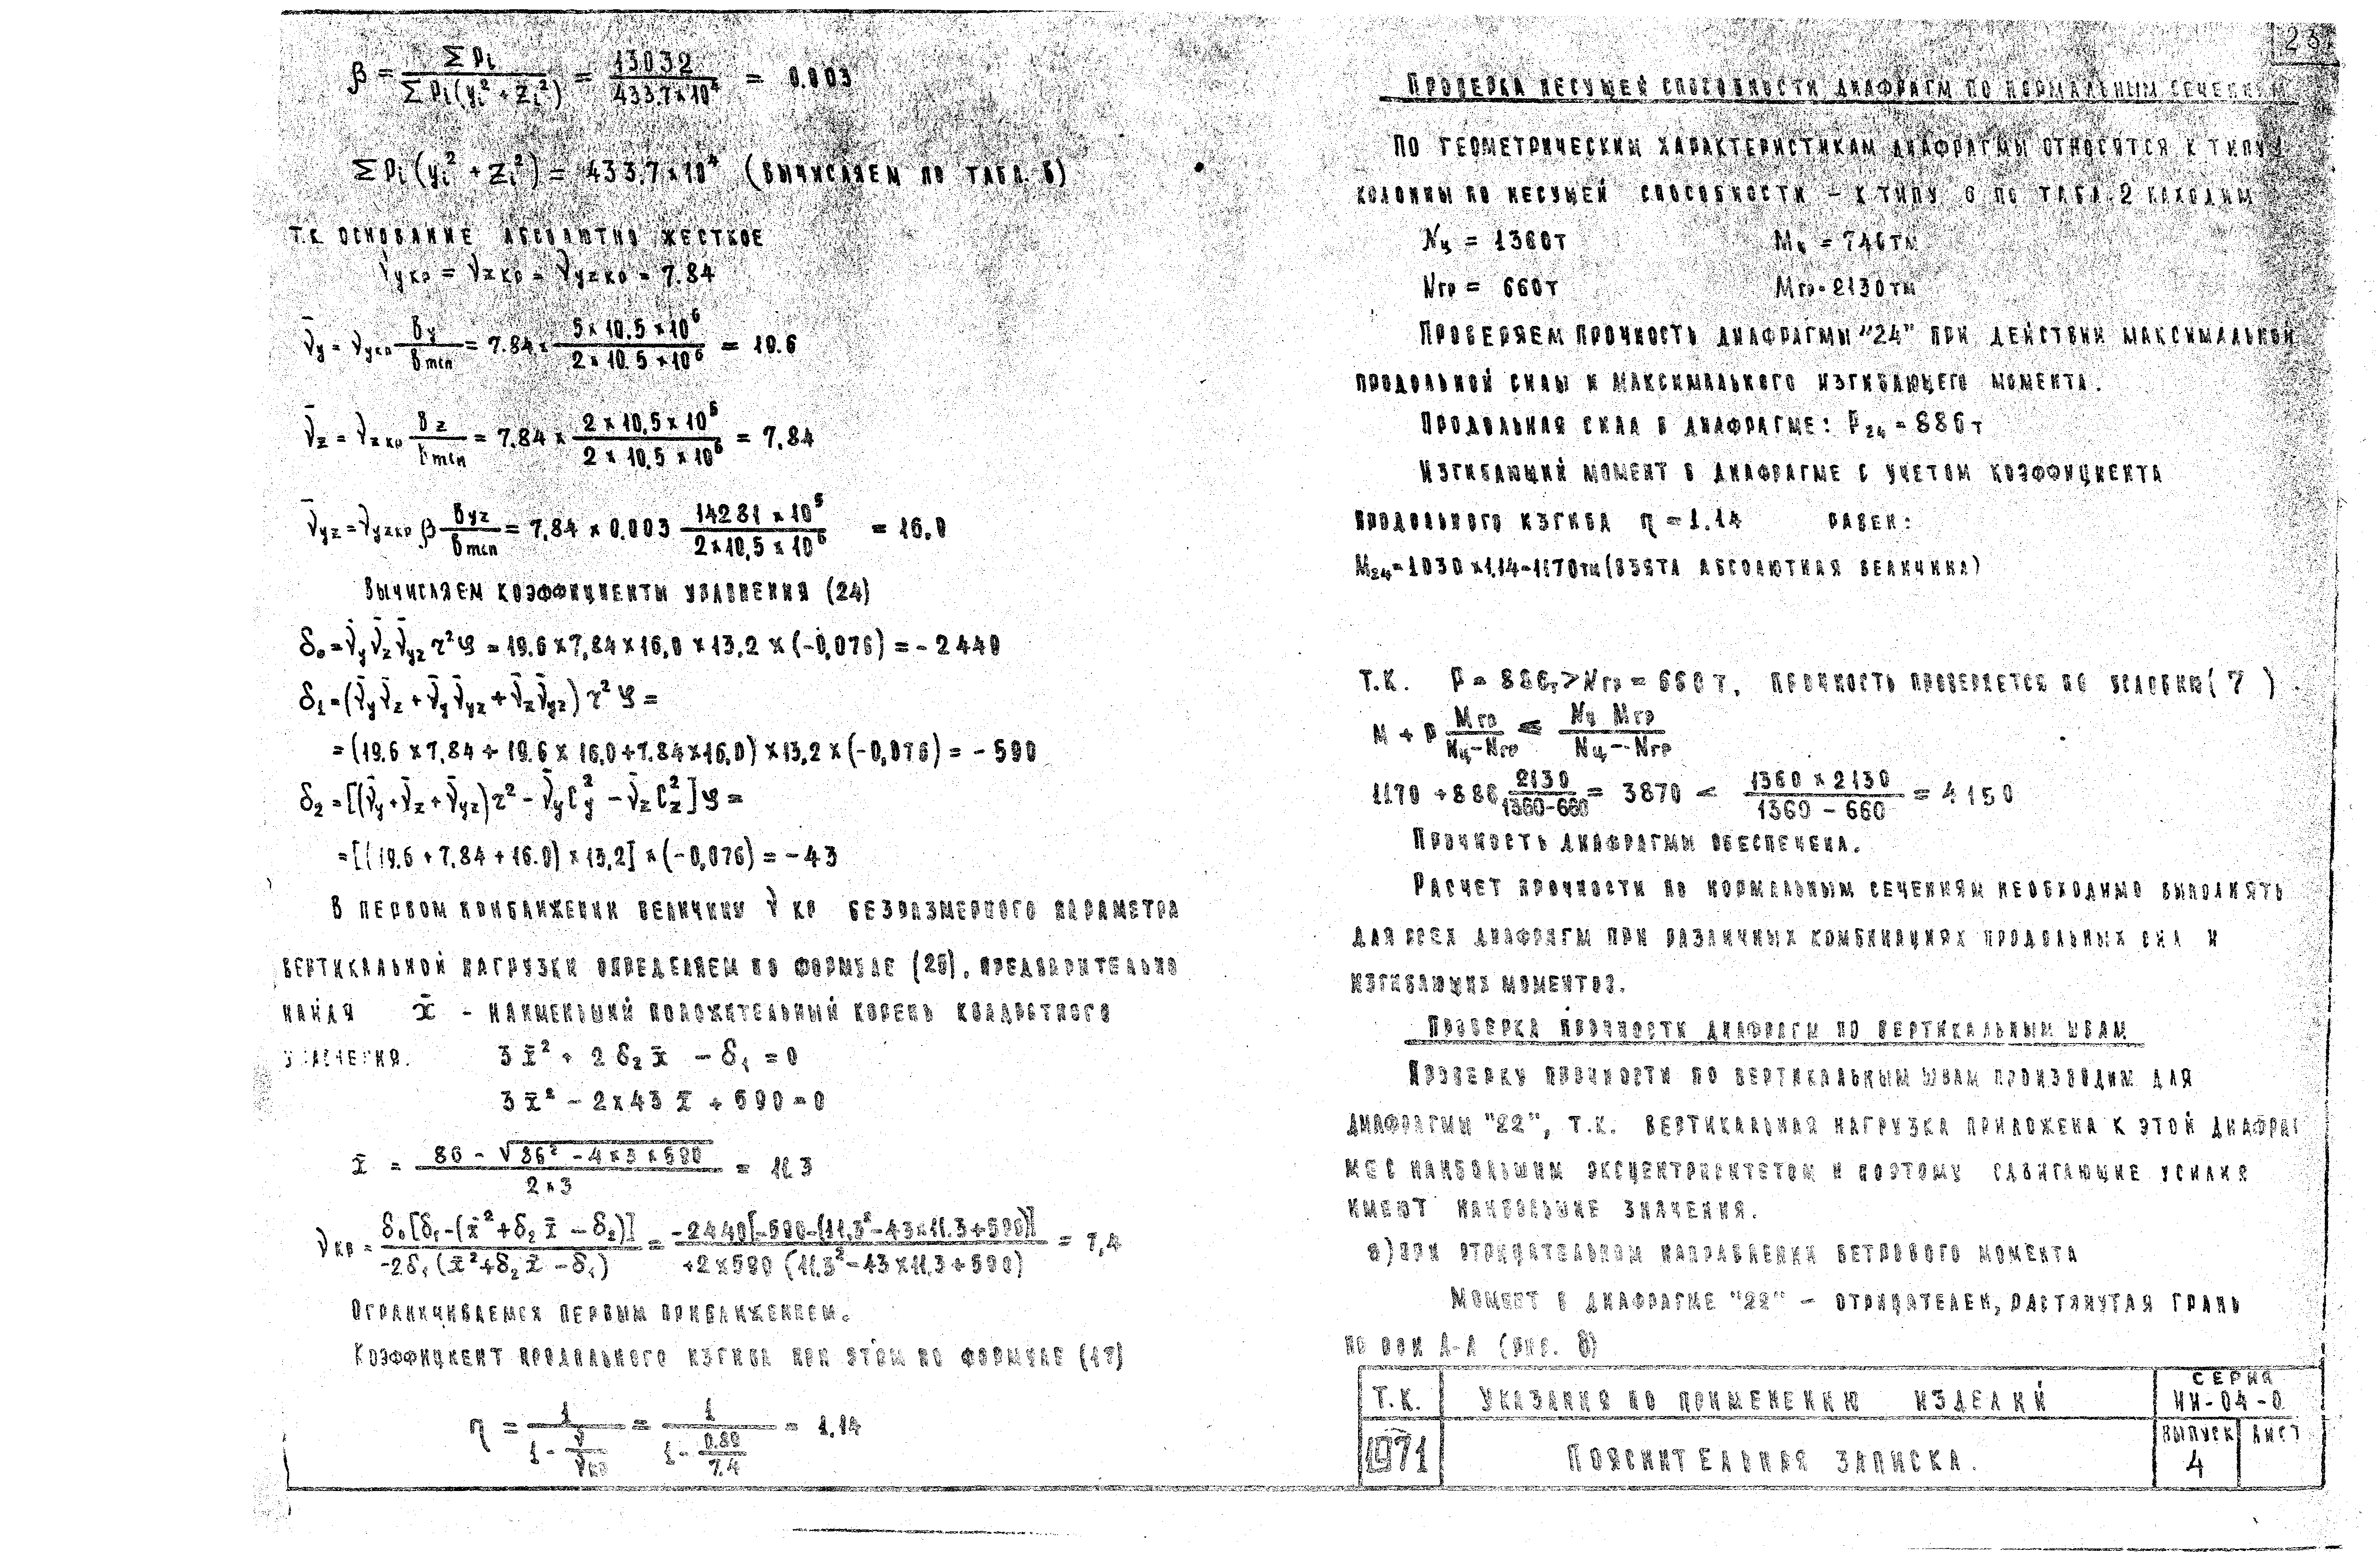 β = ΣPi / ΣPi(yi² + zi²) = 13032 / 433.7×10⁴ = 0.003
ΣPi(yi² + zi²) = 433.7×10⁴ (вычисляем по табл. 5)
т.к основание абсолютно жесткое
νyкр = νzкр = νyzкр = 7.84
ν̄y = νyкр By / Bmin = 7.84 × 5×10.5×10⁶ / 2×10.5×10⁶ = 19.6
ν̄z = νzкр Bz / Bmin = 7.84 × 2×10,5×10⁶ / 2×10,5×10⁶ = 7,84
ν̄yz = νyzкр β Byz / Bmin = 7,84 × 0.003 14281×10⁶ / 2×10,5×10⁶ = 16,0
Вычисляем коэффициенты уравнения (24)
δ₀ = ν̄y ν̄z ν̄yz r²φ = 19.6×7,84×16,0×13,2×(-0,076) = -2440
δ₁ = (ν̄y ν̄z + ν̄y ν̄yz + ν̄z ν̄yz) r²φ =
= (19.6×7,84 + 19.6×16,0 + 7.84×16,0)×13,2×(-0,076) = -590
δ₂ = [(ν̄y + ν̄z + ν̄yz)r² - ν̄y C²y - ν̄z C²z]φ =
= [(19.6 + 7,84 + 16.0)×13,2]×(-0,076) = -43
В первом приближении величину νкр безразмерного параметра
вертикальной нагрузки определяем по формуле (25), предварительно
найдя x̄ - наименьший положительный корень квадратного
уравнения. 3x̄² + 2δ₂x̄ - δ₁ = 0
3x̄² - 2×43x̄ + 590 = 0
x̄ = 86 - √86² - 4×3×590 / 2×3 = 11.3
νкр = δ₀[δ₁-(x̄²+δ₂x̄-δ₂)] / -2δ₁(x̄²+δ₂x̄-δ₁) = -2440[-590-(11,3²-43×11.3+590)] / +2×590(11.3²-43×11.3+590) = 7,4
Ограничиваемся первым приближением.
Коэффициент продольного изгиба при этом по формуле (17)
η = 1 / 1 - ν/νкр = 1 / 1 - 0.89/7.4 = 1.14
23
Проверка несущей способности диафрагм по нормальным сечениям
По геометрическим характеристикам диафрагмы относятся к типу
колонны по несущей способности - к типу 6 по табл. 2 находим
Nц = 1360т Mц = 746тм
Nгр = 660т Mгр = 2130тм
Проверяем прочность диафрагмы "24" при действии максимальной
продольной силы и максимального изгибающего момента.
Продольная сила в диафрагме: P₂₄ = 886т
Изгибающий момент в диафрагме с учетом коэффициента
продольного изгиба η = 1.14 равен:
M₂₄ = 1030×1,14 = 1170тм (взята абсолютная величина)
Т.к. P = 886т > Nгр = 660т, прочность проверяется по условию (7)
M + P Mгр / Nц - Nгр ≤ Nц Mгр / Nц - Nгр
1170 + 886 2130 / 1360-660 = 3870 < 1360×2130 / 1360 - 660 = 4150
Прочность диафрагмы обеспечена.
Расчет прочности по нормальным сечениям необходимо выполнять
для всех диафрагм при различных комбинациях продольных сил и
изгибающих моментов.
Проверка прочности диафрагм по вертикальным швам
Проверку прочности по вертикальным швам производим для
диафрагмы "22", т.к. вертикальная нагрузка приложена к этой диафраг
ме с наибольшим эксцентриситетом и поэтому сдвигающие усилия
имеют наибольшие значения.
а) при отрицательном направлении ветрового момента
Момент в диафрагме "22" - отрицателен, растянутая грань
по оси А-А (рис. 8)
Т.К. Указания по применению изделий серия ИИ-04-0
1971 Пояснительная записка. выпуск 4 лист